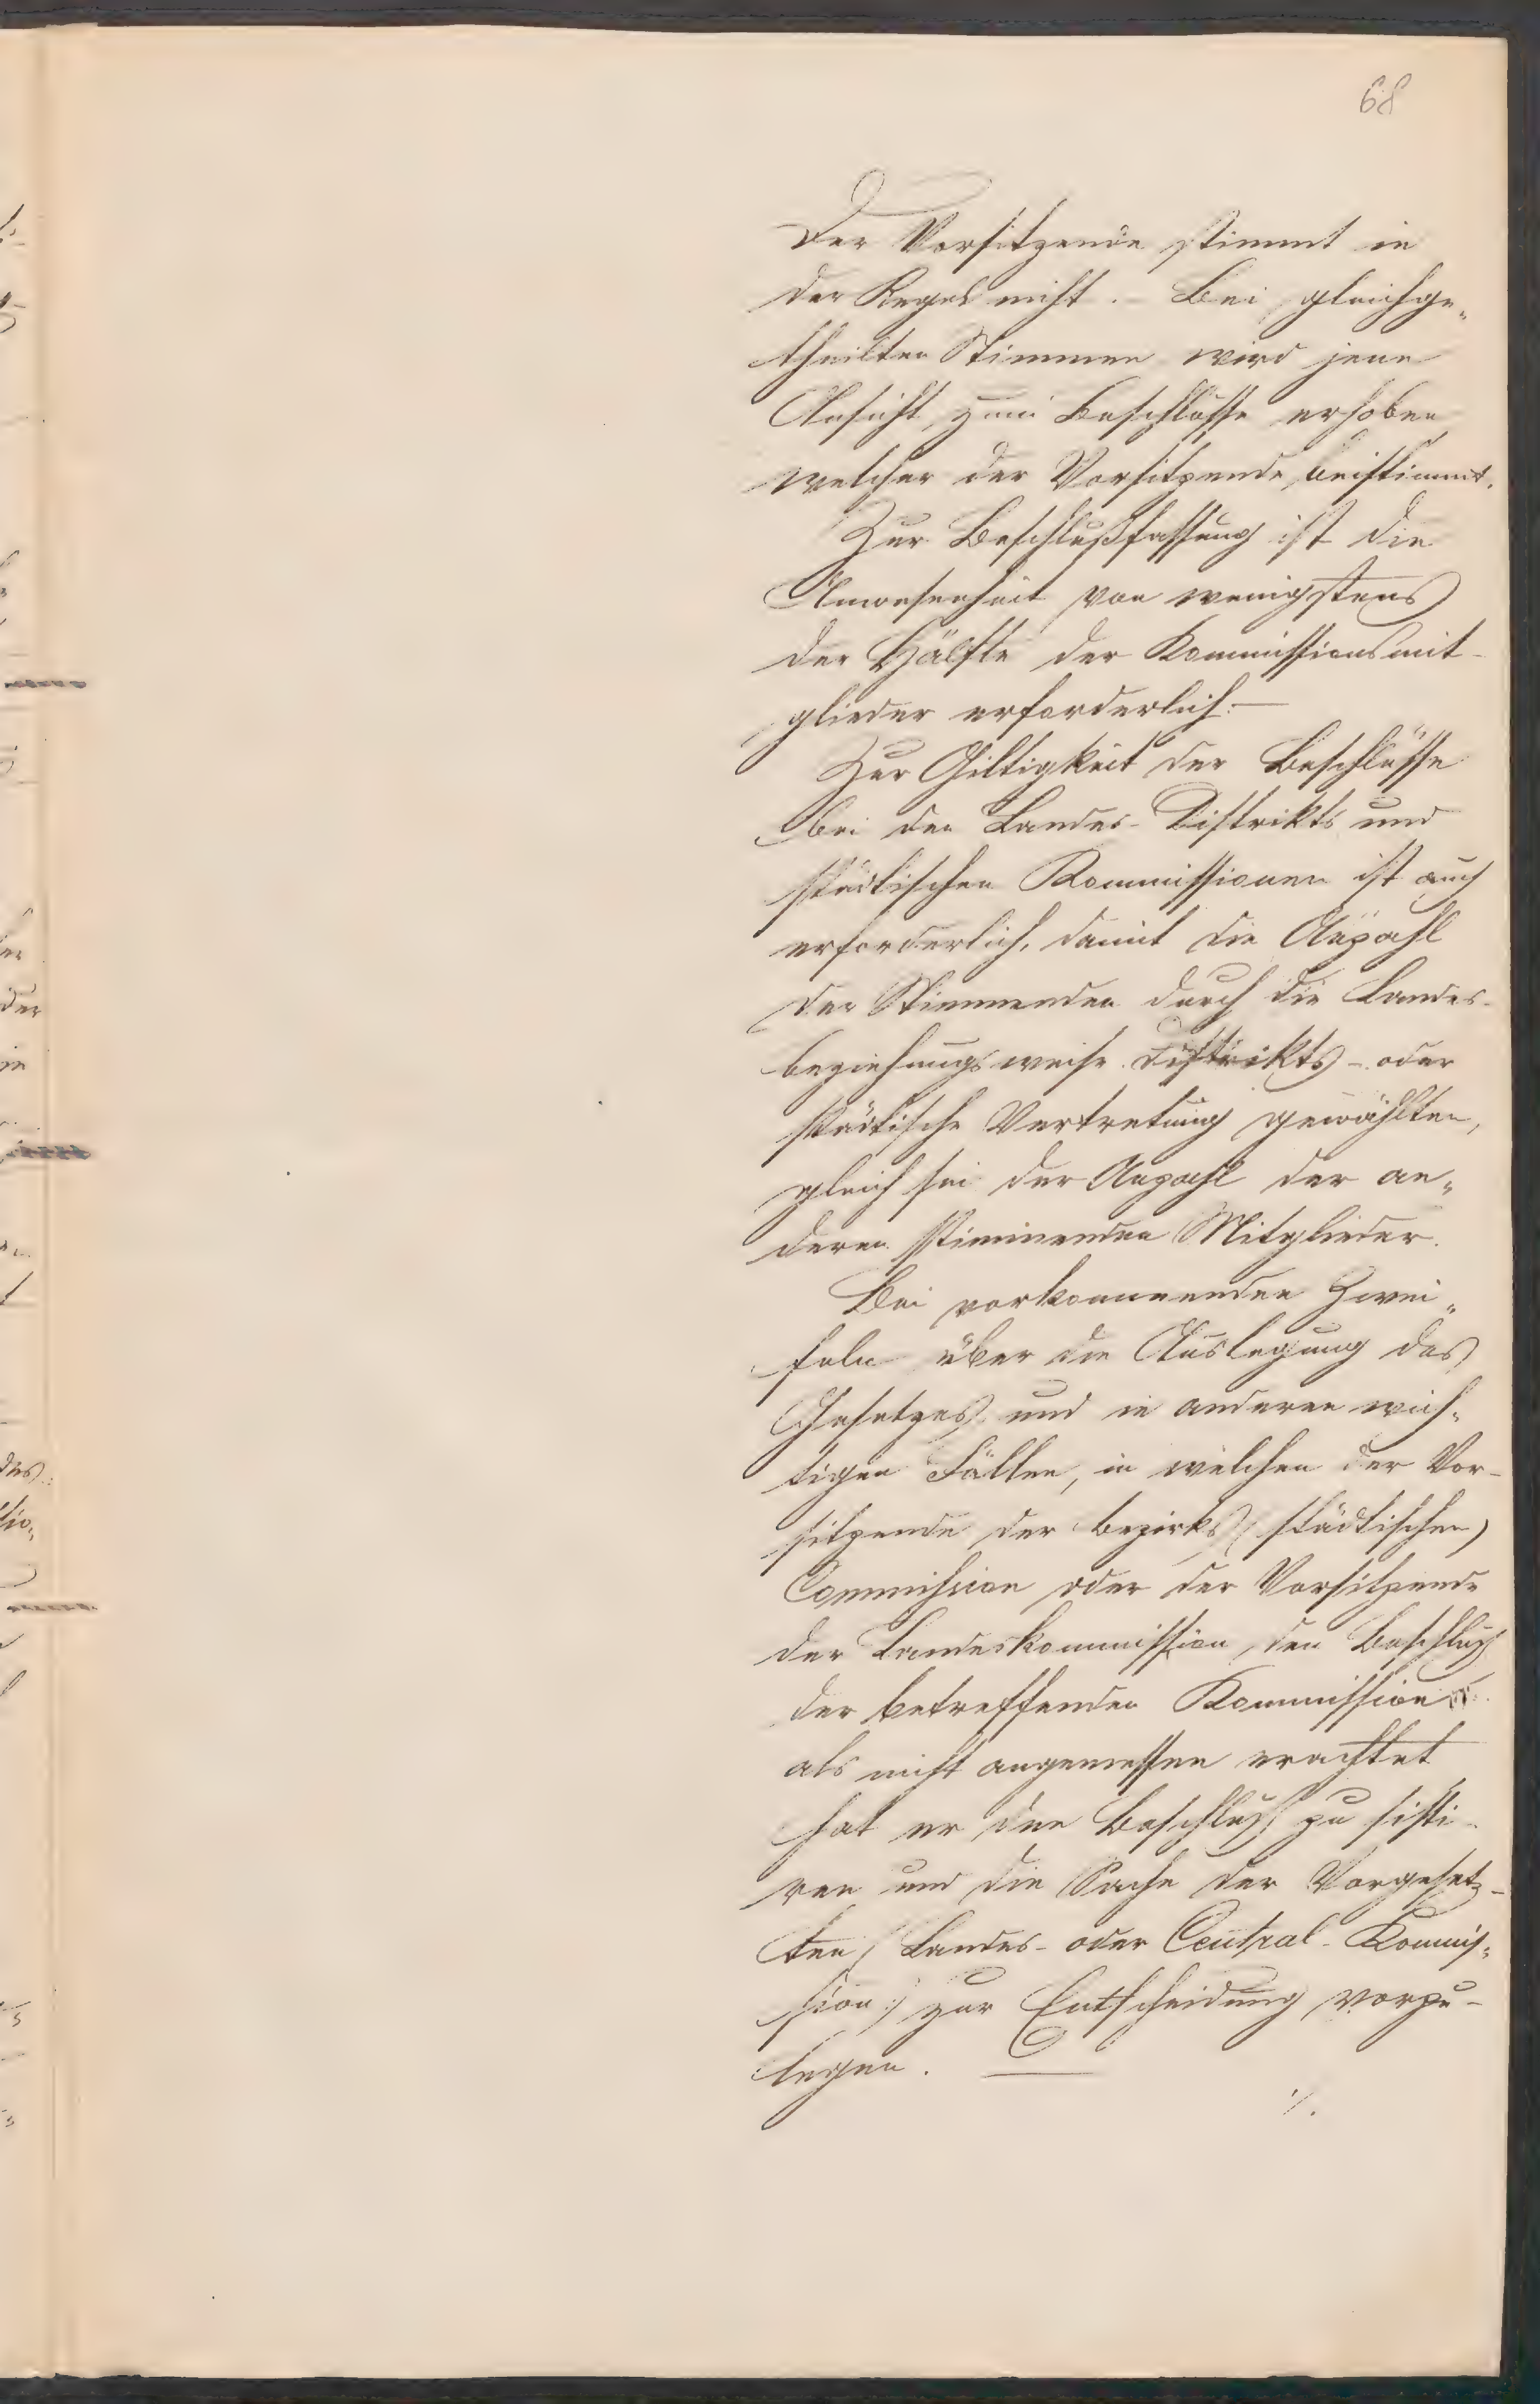 68
Der Vorsitzende stimmt in
der Regel nicht. – Bei gleichge„
theilten Stimmen wird jene
Ansicht zum Beschlusse erhoben
welcher der Vorsitzende beistimmt.
Zur Beschlußfassung ist die
Anwesenheit von wenigstens
der Hälfte der Kommissionsmit-
glieder erforderlich. –
Zur Giltigkeit der Beschlüsse
bei den Landes- Distrikts und
städtischen Kommissionen ist auch
erforderlich, damit die Anzahl
der Stimmenden durch die Landes-
beziehungsweise Distrikts- oder
städtische Vertretung gewählten,
gleich sei der Anzahl der an„
deren stimmenden Mitglieder.
Bei vorkommenden Zwei„
feln über die Auslegung des
Gesetzes und in anderen wich„
tigen Fällen, in welchen der Vor-
sitzende der Bezirks (städtischen)
Commission oder der Vorsitzende
der Landeskommission, den Beschluß
der betreffenden Kommission
als nicht angemessen erachtet
hat er den Beschluß zu sisti-
ren und die Sache der Vorgesetz-
ten (Landes- oder Central-Kommis„
sion) zur Entscheidung vorzu-
legen.
./.